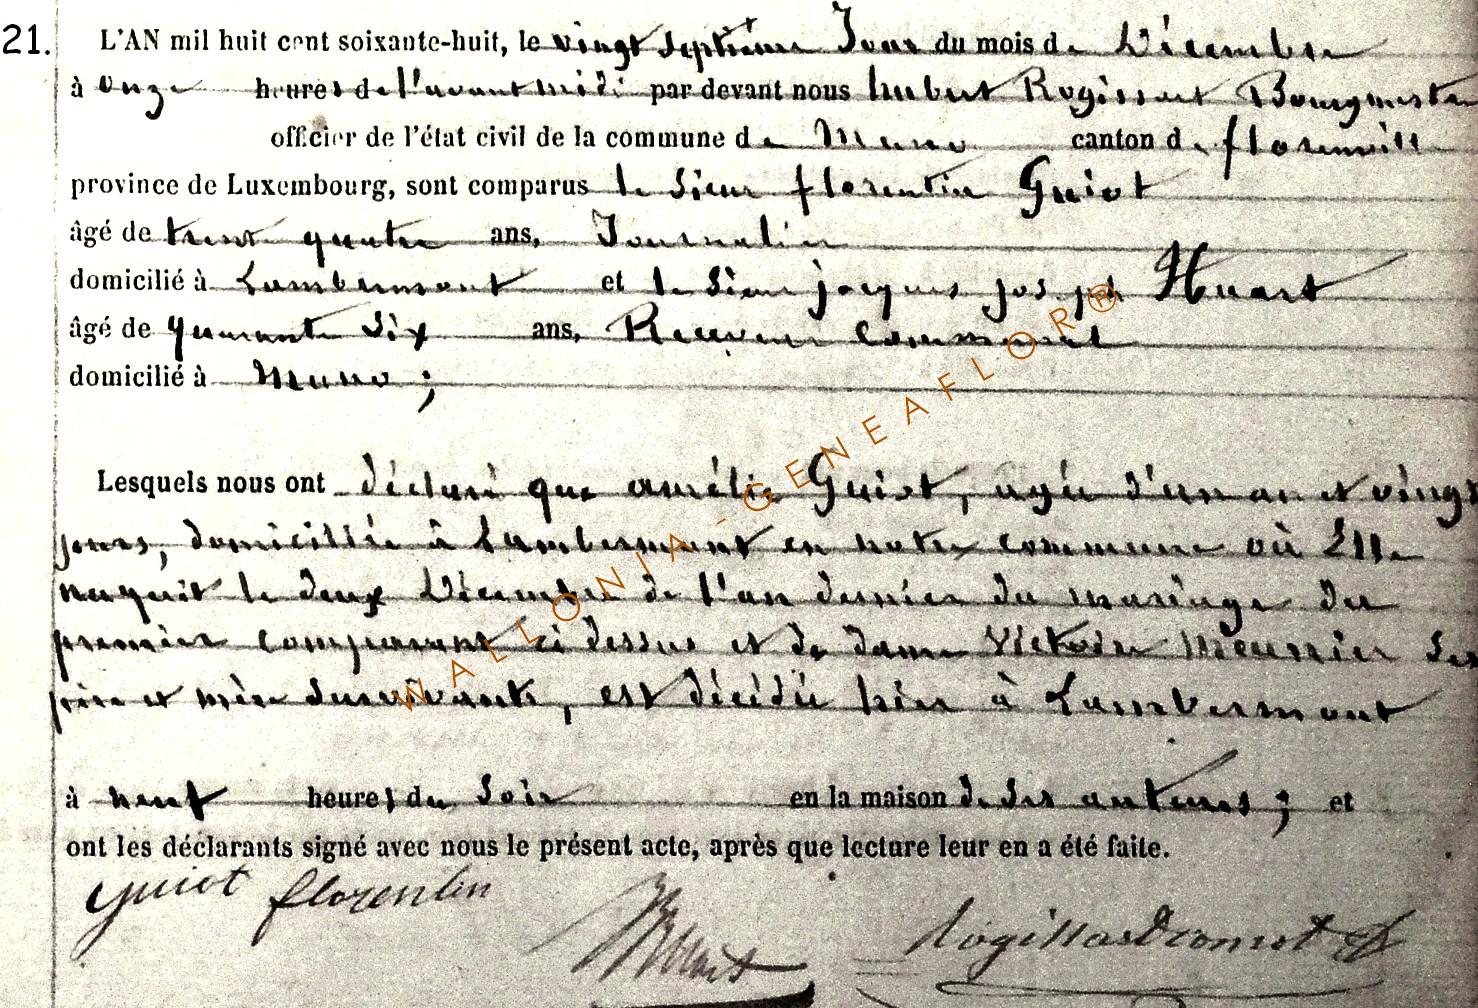 21. L'AN mil huit cent soixante-huit, le vingt septième Jour du mois de Décembre
à onze heures de l'avant midi par devant nous hubert Rogissart Bourgmestre
officier de l'état civil de la commune de Muno canton de florenville
province de Luxembourg, sont comparus le Sieur florentin Guiot
âgé de trente quatre ans, Journalier
domicilié à Lambermont et le Sieur jacques joseph Huart
âgé de quarante Six ans, Receveur communal
domicilié à Muno ;
Lesquels nous ont déclaré que amélie Guiot, agée d'un an et vingt
jours, domiciliée à Lambermont en notre commune où Elle
naquit le deux Décembre de l'an dernier du mariage du
premier comparant ci dessus et de dame Victoire Meunier Ses
père et mère Survivants, est décédée hier à Lambermont
à neuf heures du Soir en la maison de Ses auteurs ; et
ont les déclarants signé avec nous le présent acte, après que lecture leur en a été faite.
Guiot florentin Huart
WALLONIA-GENEAFLOR®